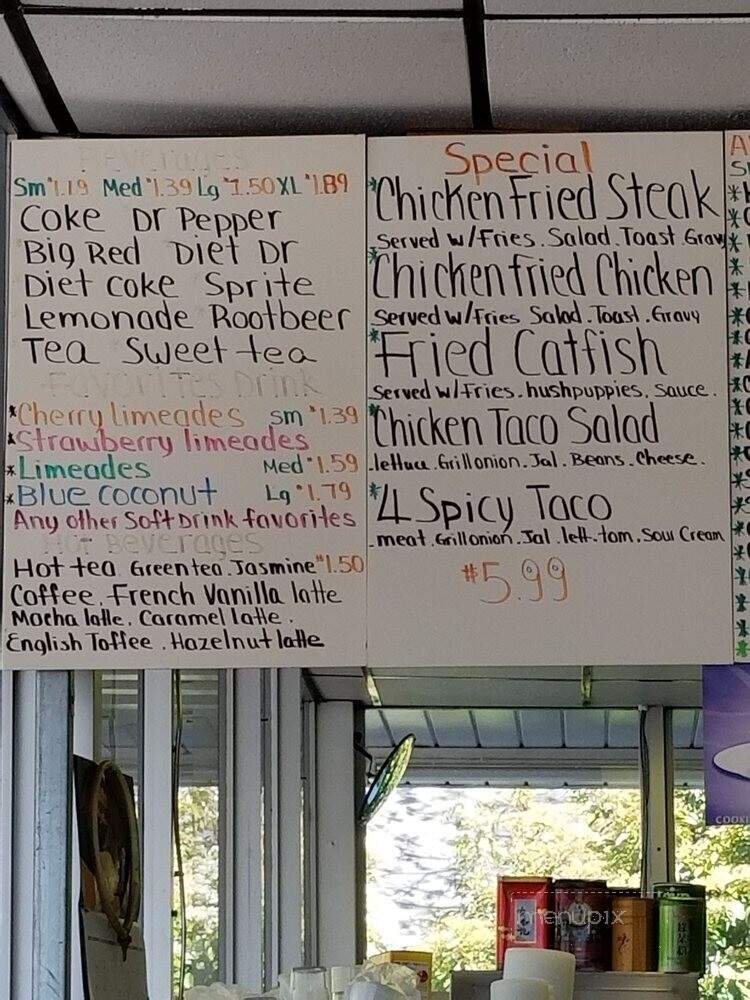 Beverages
Sm $1.19 Med $1.39 Lg $1.50 XL $1.89
Coke Dr Pepper
Big Red Diet Dr
Diet Coke Sprite
Lemonade Rootbeer
Tea Sweet tea
Favorites Drink
*Cherry limeades sm $1.39
*Strawberry limeades
*Limeades Med $1.59
*Blue coconut Lg $1.79
Any other Soft Drink favorites
Hot Beverages
Hot tea Green tea. Jasmine $1.50
Coffee. French Vanilla latte
Mocha latte. Caramel latte.
English Toffee. Hazelnut latte
Special
*Chicken Fried Steak
Served w/Fries. Salad. Toast. Gravy
*Chicken fried Chicken
Served w/Fries Salad. Toast. Gravy
*Fried Catfish
Served w/Fries. hushpuppies. Sauce.
*Chicken Taco Salad
lettuce. Grill onion. Jal. Beans. Cheese.
*4 Spicy Taco
meat. Grill onion. Jal. lett. tom. Sour Cream
$5.99
COOKI
menupix